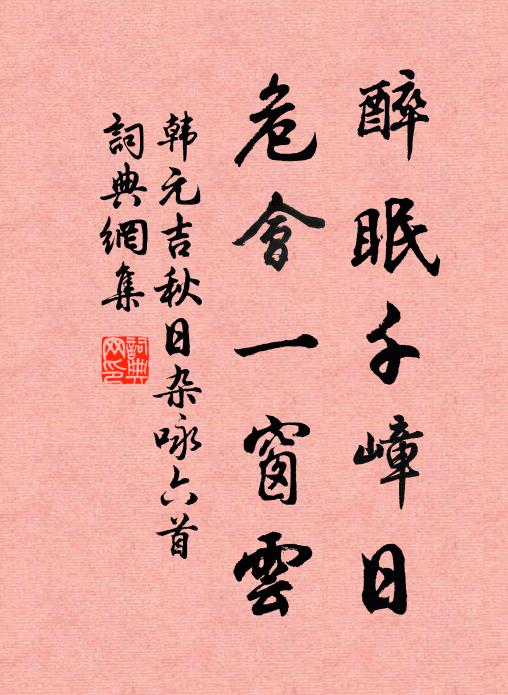 醉眠千嶂日
危會一窗雲
韩元吉秋日杂咏六首
詞典網集
詞典網印